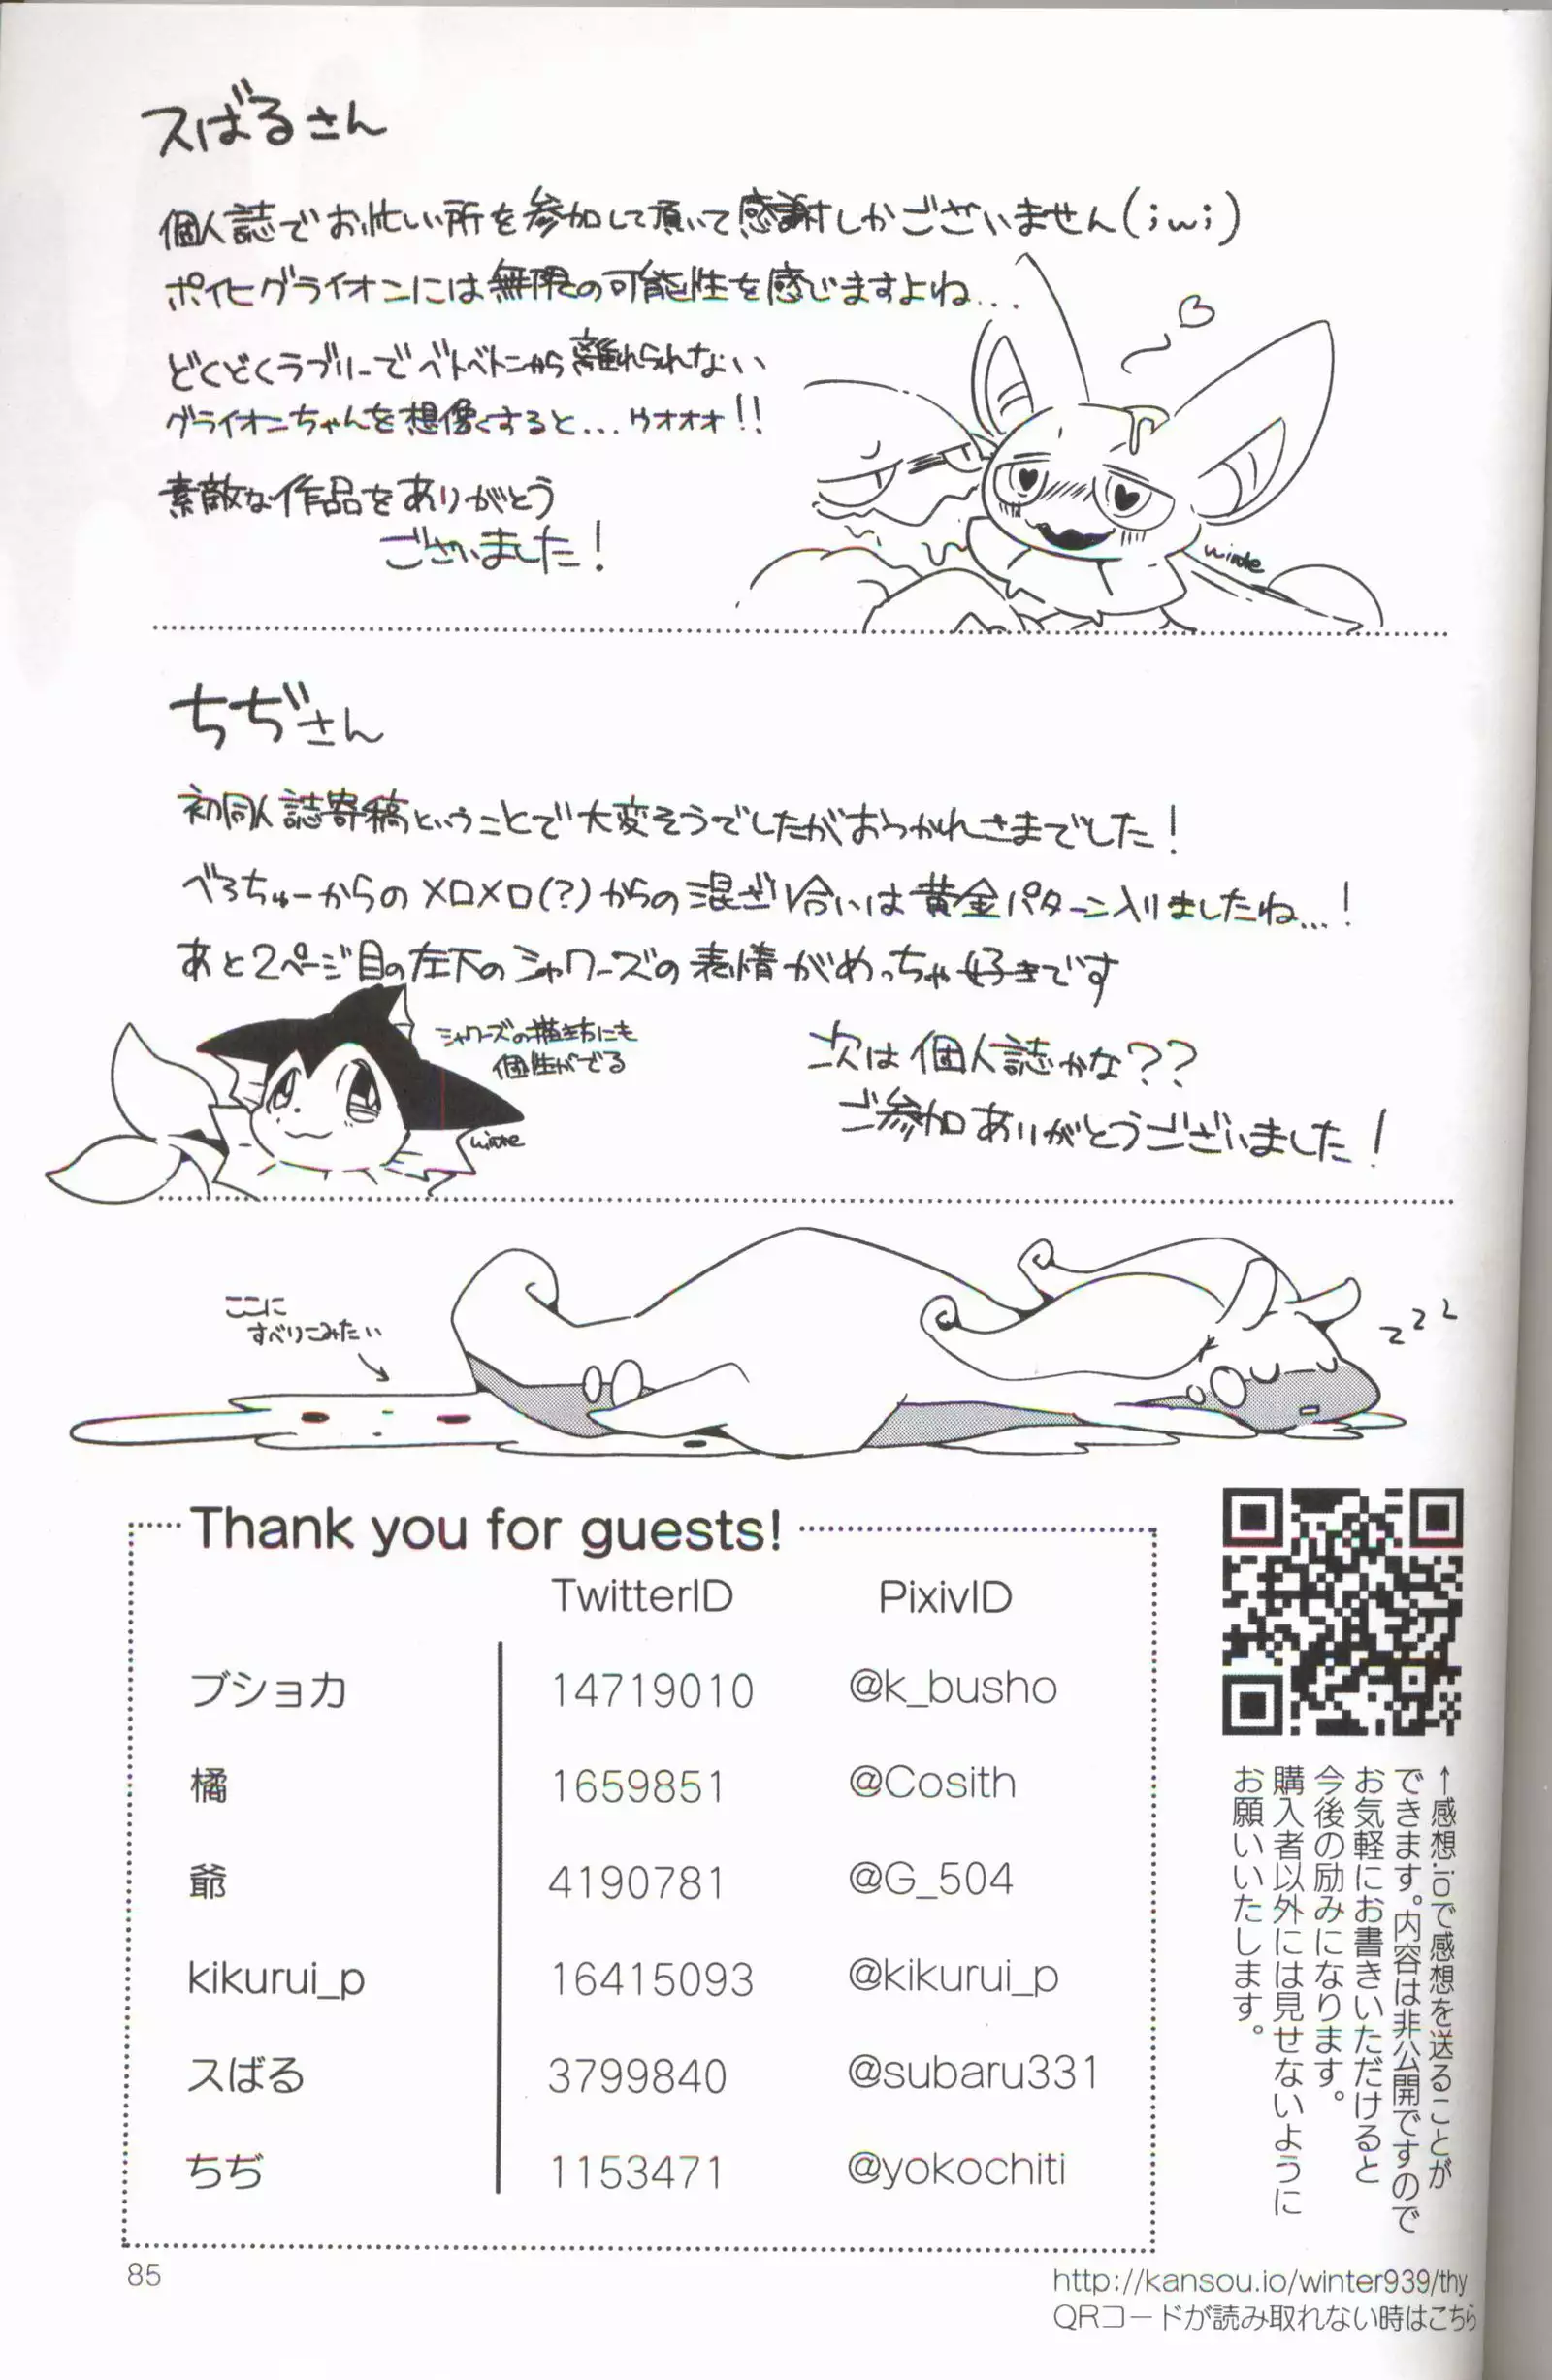 スばるさん
個人誌でお忙しい所を参加して頂いて感謝しかございません(;ω;)
ポイヒグライオンには無限の可能性を感じますよね...
どくどくラブリーでベトベトンから離れられない
グライオンちゃんを想像すると...ウオオオ!!
素敵な作品をありがとう
ございました!
ちぢさん
初同人誌寄稿ということで大変そうでしたがおつかれさまでした!
べろちゅーからのメロメロ(?)からの混ざり合いは黄金パターン入りましたね...!
あと2ページ目の左下のシャワーズの表情がめっちゃ好きです
シャワーズの描き方にも
個性がでる
次は個人誌かな??
ご参加ありがとうございました!
ここに
すべりこみたい
zzz
Thank you for guests!
TwitterID PixivID
ブショカ 14719010 @k_busho
橘 1659851 @Cosith
爺 4190781 @G_504
kikurui_p 16415093 @kikurui_p
スばる 3799840 @subaru331
ちぢ 1153471 @yokochiti
←感想.ioで感想を送ることが
できます。内容は非公開ですので
お気軽にお書きいただけると
今後の励みになります。
購入者以外には見せないように
お願いいたします。
85
http://kansou.io/winter939/thy
QRコードが読み取れない時はこちら